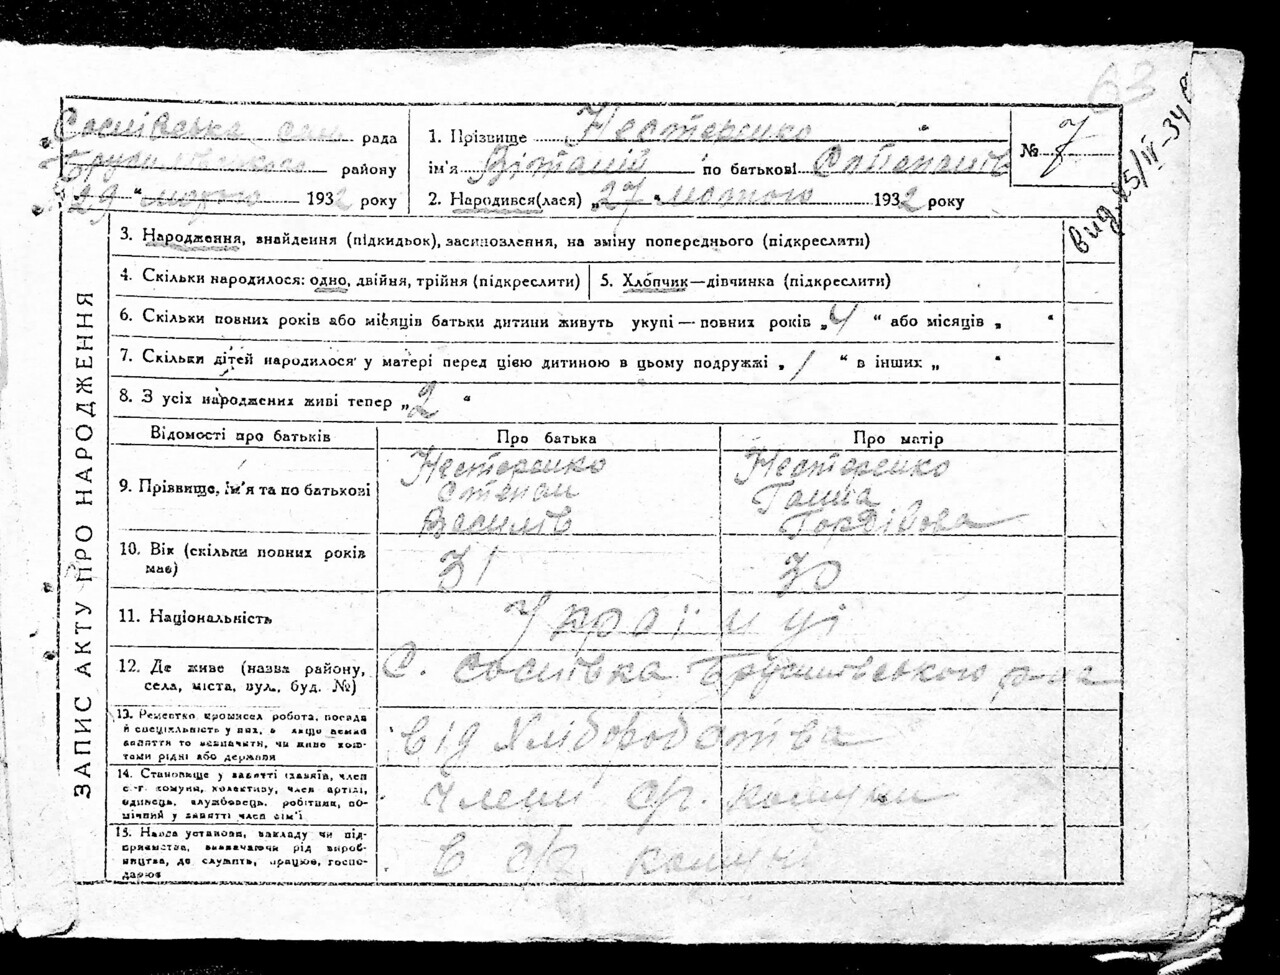 63
вид. 25/IV-34 р
Соснівська сіль рада
Брусилівського району
"29" лютого 1932 року
1. Прізвище Нестеренко
ім'я Віталій по батькові Степанів
2. Народився(лася) "27" лютого 1932 року
№ 7
ЗАПИС АКТУ ПРО НАРОДЖЕННЯ
3. Народження, внайдення (підкидьок), васиновлення, на зміну попереднього (підкреслити)
4. Скільки народилося: одно, двійня, трійня (підкреслити)
5. Хлопчик—дівчинка (підкреслити)
6. Скільки повних років або місяців батьки дитини живуть укупі — повних років „4" або місяців „ "
7. Скільки дітей народилося у матері перед цією дитиною в цьому подружжі „1" в інших „ "
8. З усіх народжених живі тепер „2"
Відомості про батьків Про батька Про матір
9. Прізвище, ім'я та по батькові
Нестеренко
Степан
Василів
Нестеренко
Ганна
Гордієва
10. Вік (скільки повних років має)
31 30
11. Національність
Українці
12. Де живе (назва району,
села, міста, вул., буд. №)
С. Соснівка Брусилівського р-на
13. Ремество промисел робота, посада
й спеціяльність у них, а якщо нема
заняття то зазначити, чи живе кош-
тами рідні або держави
від Хліборобства
14. Становище у занятті (хазяїн, член
с.-г. комуни, колективу, член артілі,
одинець, службовець, робітник, по-
мічний у занятті член сім'ї
Члени с/г. комуни
15. Назва установи, закладу чи під-
приємства, визначаючи рід вироб-
ництва, де служить, працює, госпо-
дарює
в с/г комуні